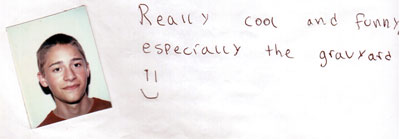 Really cool and funny,
especially the gravyard
!!